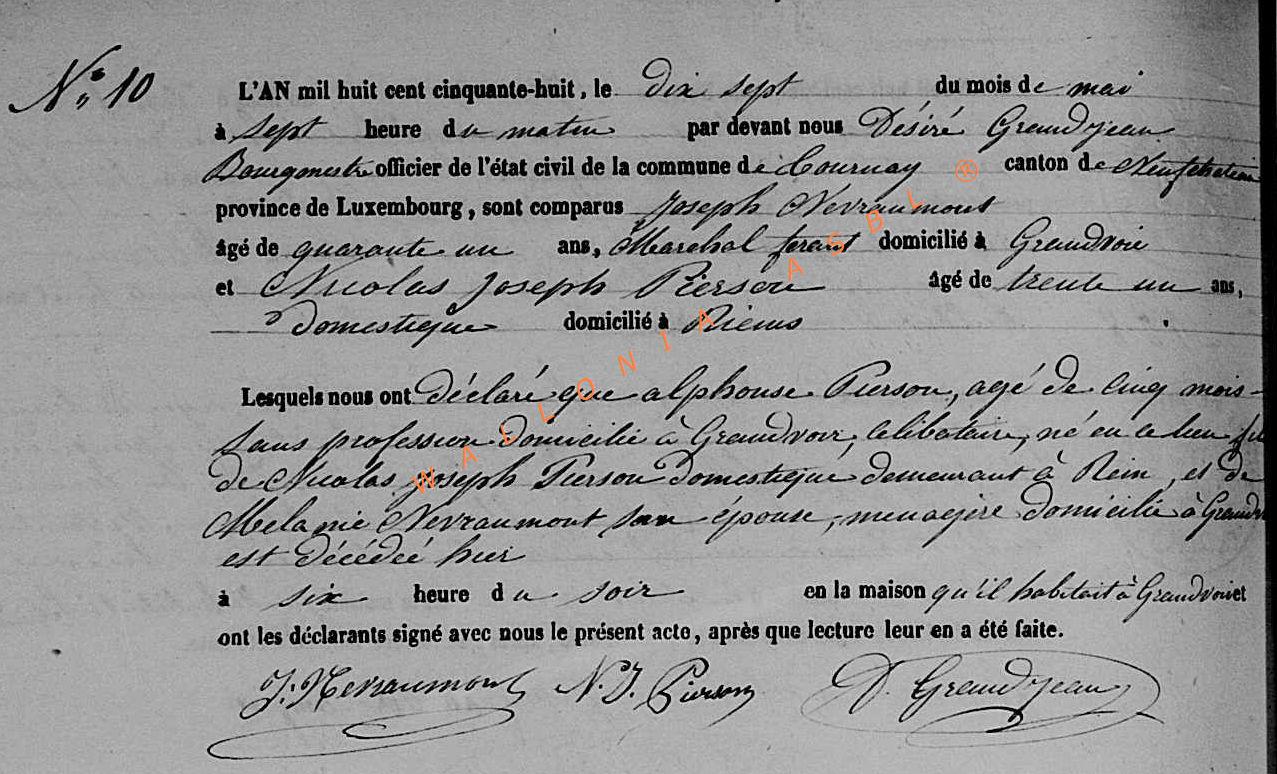 N° 10
L'AN mil huit cent cinquante-huit, le dix sept du mois de mai
à sept heure du matin par devant nous Désiré Grandjean
Bourgmestre officier de l'état civil de la commune de Tournay canton de Neufchateau
province de Luxembourg, sont comparus Joseph Nevraumont
âgé de quarante un ans, Marechal ferant domicilié à Grandvoir
et Nicolas Joseph Pierson âgé de trente un ans,
Domestique domicilié à
Lesquels nous ont déclaré que alphonse Pierson, agé de cinq mois
sans profession domicilié à Grandvoir, celibataire, né en ce lieu fils
de Nicolas Joseph Pierson Domestique demeurant à, et de
Melanie Nevraumont son épouse, menagère domicilié à Grandv
est décédé hier
à six heure du soir en la maison qu'il habitait à Grandvoir et
ont les déclarants signé avec nous le présent acte, après que lecture leur en a été faite.
J. Nevraumont N. J. Pierson D. Grandjean
WALLONIA ASBL ®